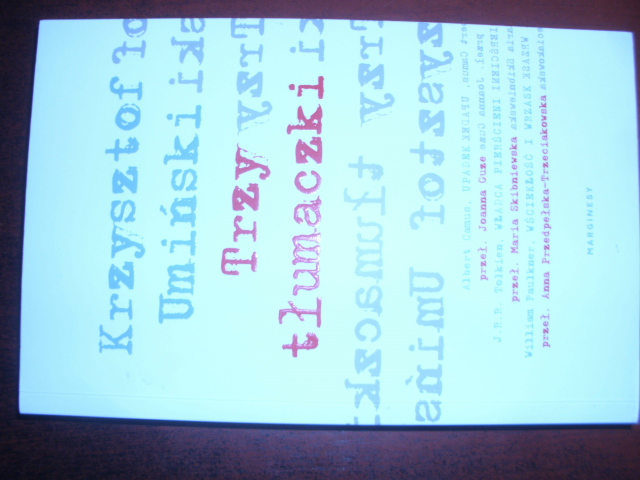 Krzysztof
Umiński
Trzy
tłumaczki
Trzy tłumaczki
zysztof Umińs
Albert Camus, UPADEK
przeł. Joanna Guze
J.R.R Tolkien, WŁADCA PIERŚCIENI
przeł. Maria Skibniewska
William Faulkner, WŚCIEKŁOŚĆ I WRZASK
przeł. Anna Przedpełska-Trzeciakowska
MARGINESY